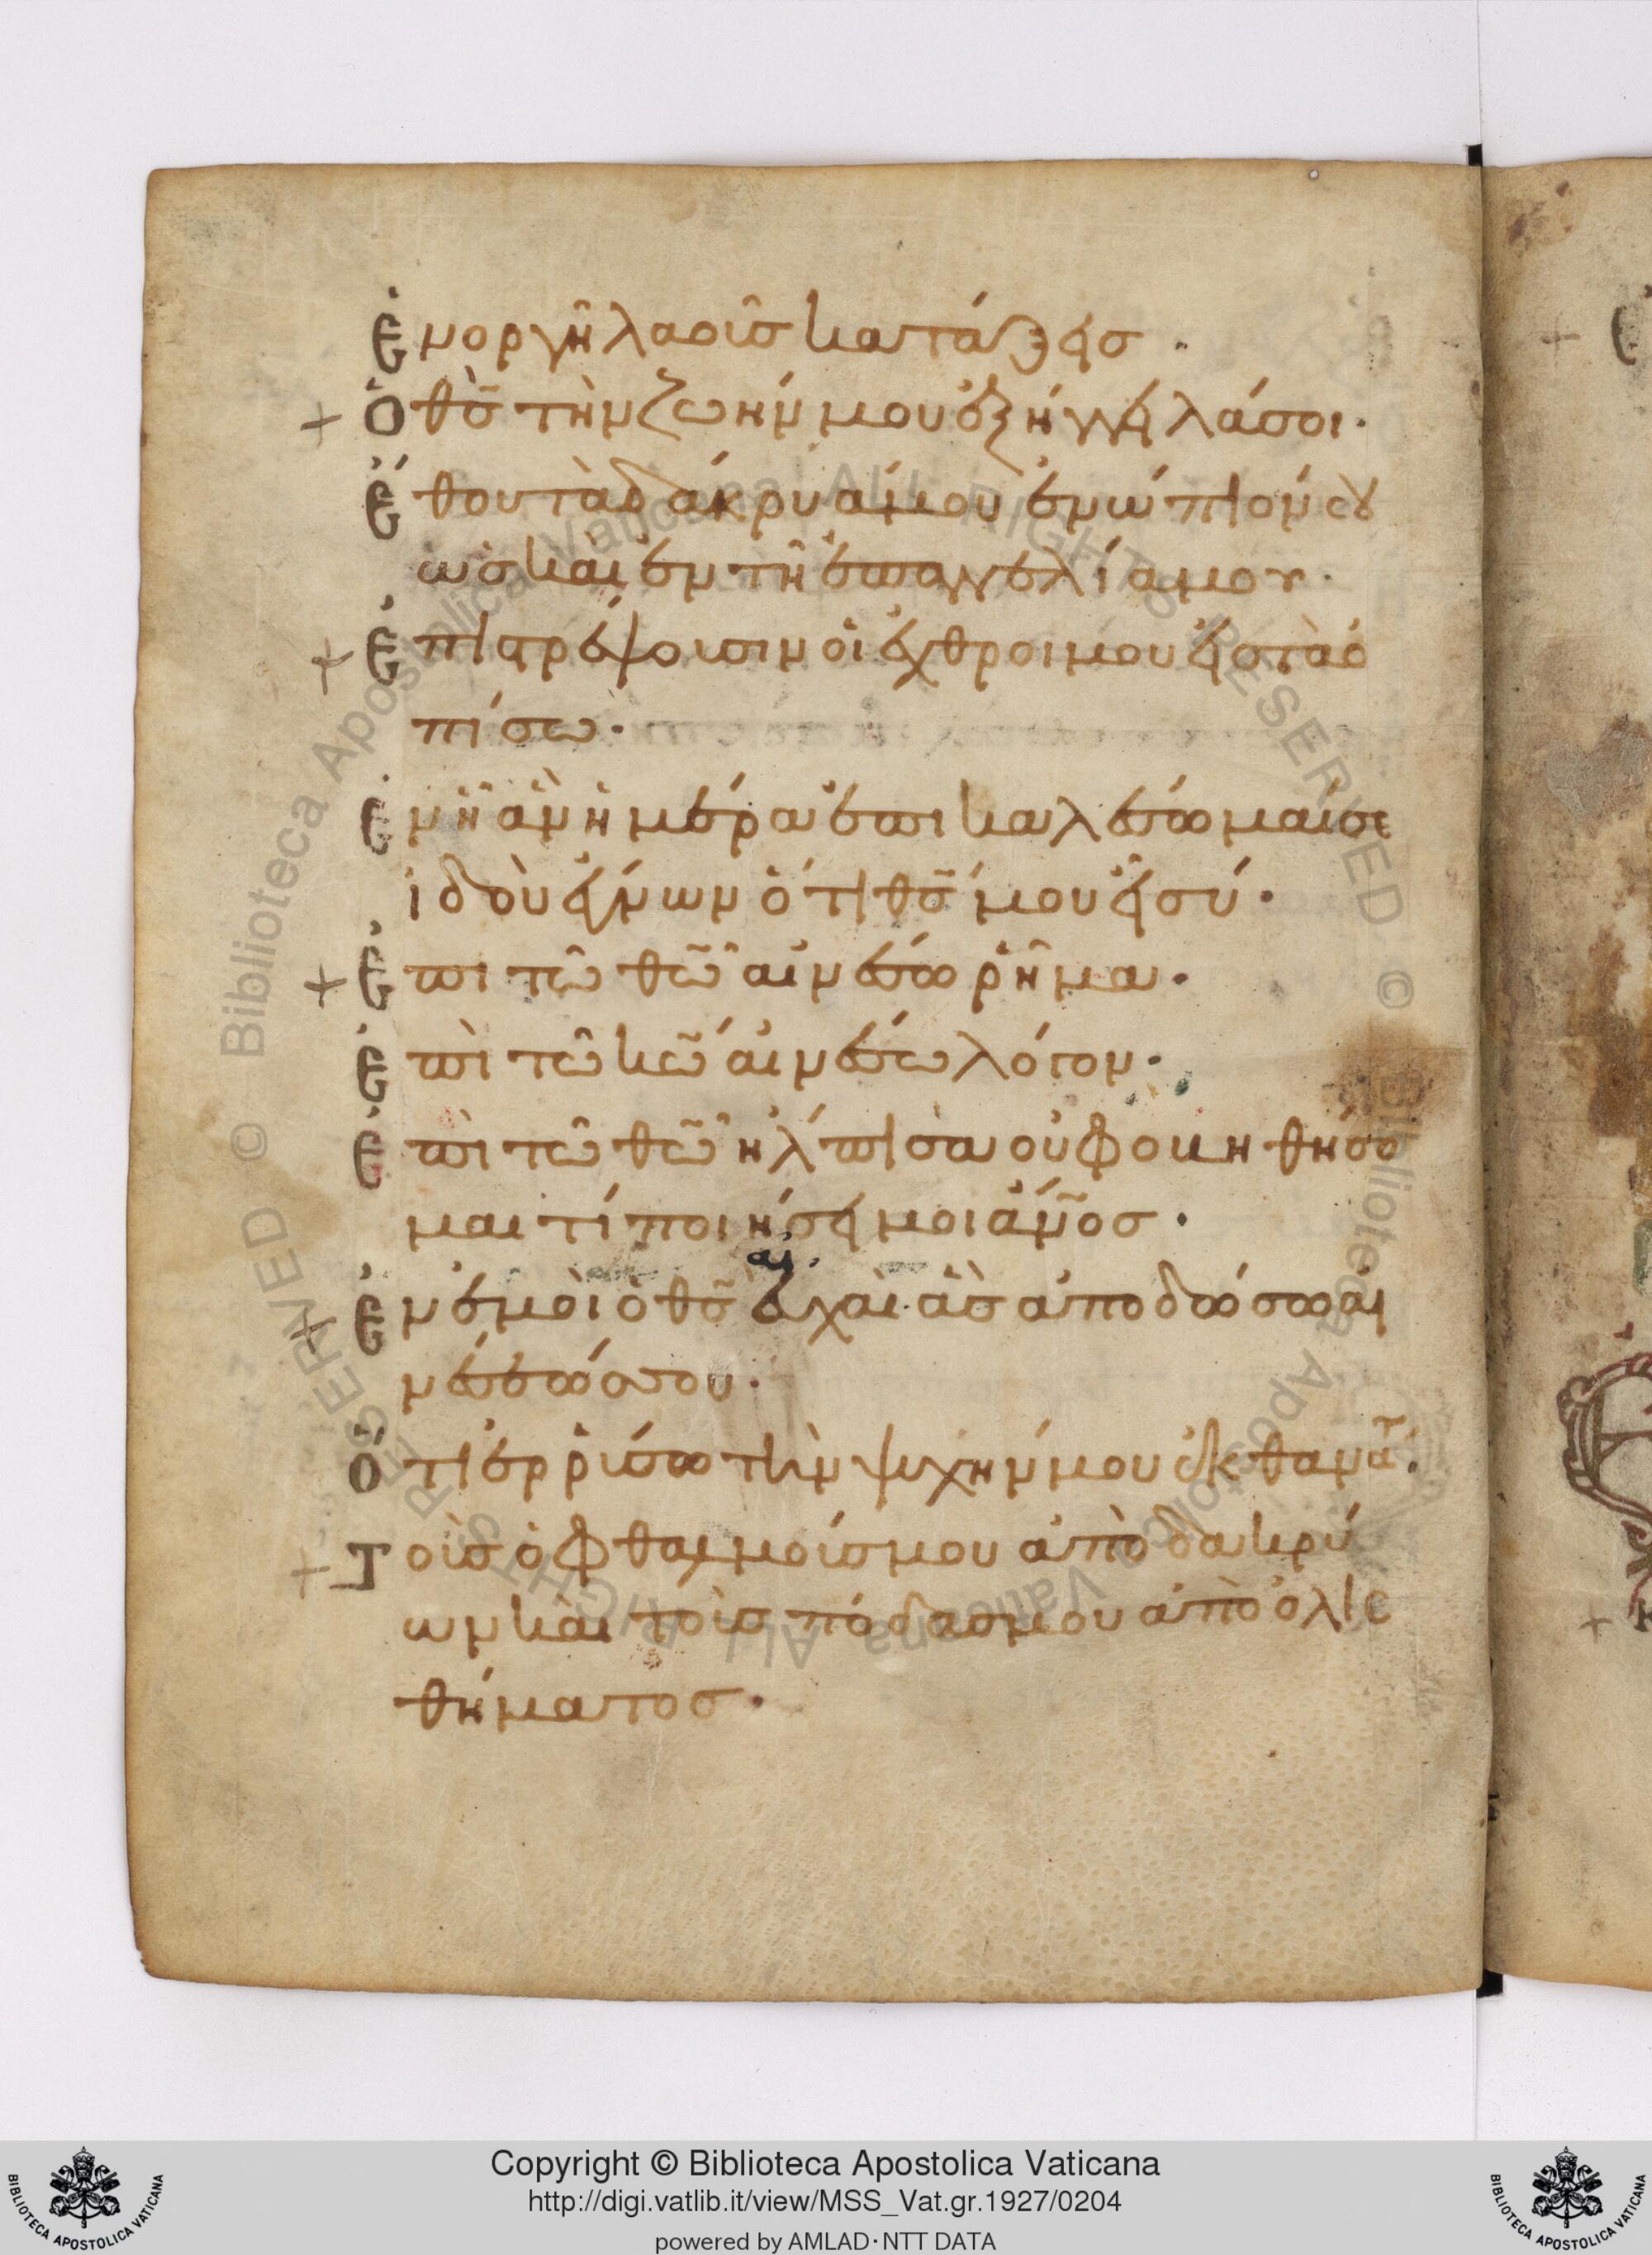 ἐν ὀργῆ λαοῖσ κατάξεισ ·
+ ὁ θς̄ τὴν ζωήν μου ἐξήγγειλά σοι ·
ἔθου τὰ δάκρυά μου ἐνώπιόν σου
ὡσ καὶ ἐν τῆ ἐπαγγελία μου ·
+ ἐπιστρέψουσιν οἱ ἐχθροι μου εἰσ τὰ ὀ
πίσω ·
ἐν ἧ ἂν ἡμέρα ἐπικαλέσωμαί σε
ἰδοὺ ἔγνων ὅτι θς̄ μου εἶ σύ ·
+ ἐπι τῶ θῶ̄ αἰνέσω ρῆμα ·
ἐπὶ τῶ κῶ̄ αἰνέσω λόγον ·
ἐπὶ τῶ θῶ̄ ἤλπισα οὐ φοβηθήσο
μαι τί ποιήσει μοι ἄν̄οσ ·
+ ἐν ἐμοὶ ὁ θς̄ εὐχαὶ ἃσ ἀποδώσω αἰ
νέσεώσ σου ·
ὅτι ἐρρύσω τὴν ψυχήν μου ἐκ θανάτ ·
+ τοὺσ ὀφθαλμούσ μου ἀπὸ δακρύ
ων καὶ τοὺσ πόδασ μου ἀπὸ ὀλισ
θήματοσ ·
Copyright © Biblioteca Apostolica Vaticana
http://digi.vatlib.it/view/MSS_Vat.gr.1927/0204
powered by AMLAD·NTT DATA
BIBLIOTECA APOSTOLICA VATICANA
BIBLIOTECA APOSTOLICA VATICANA